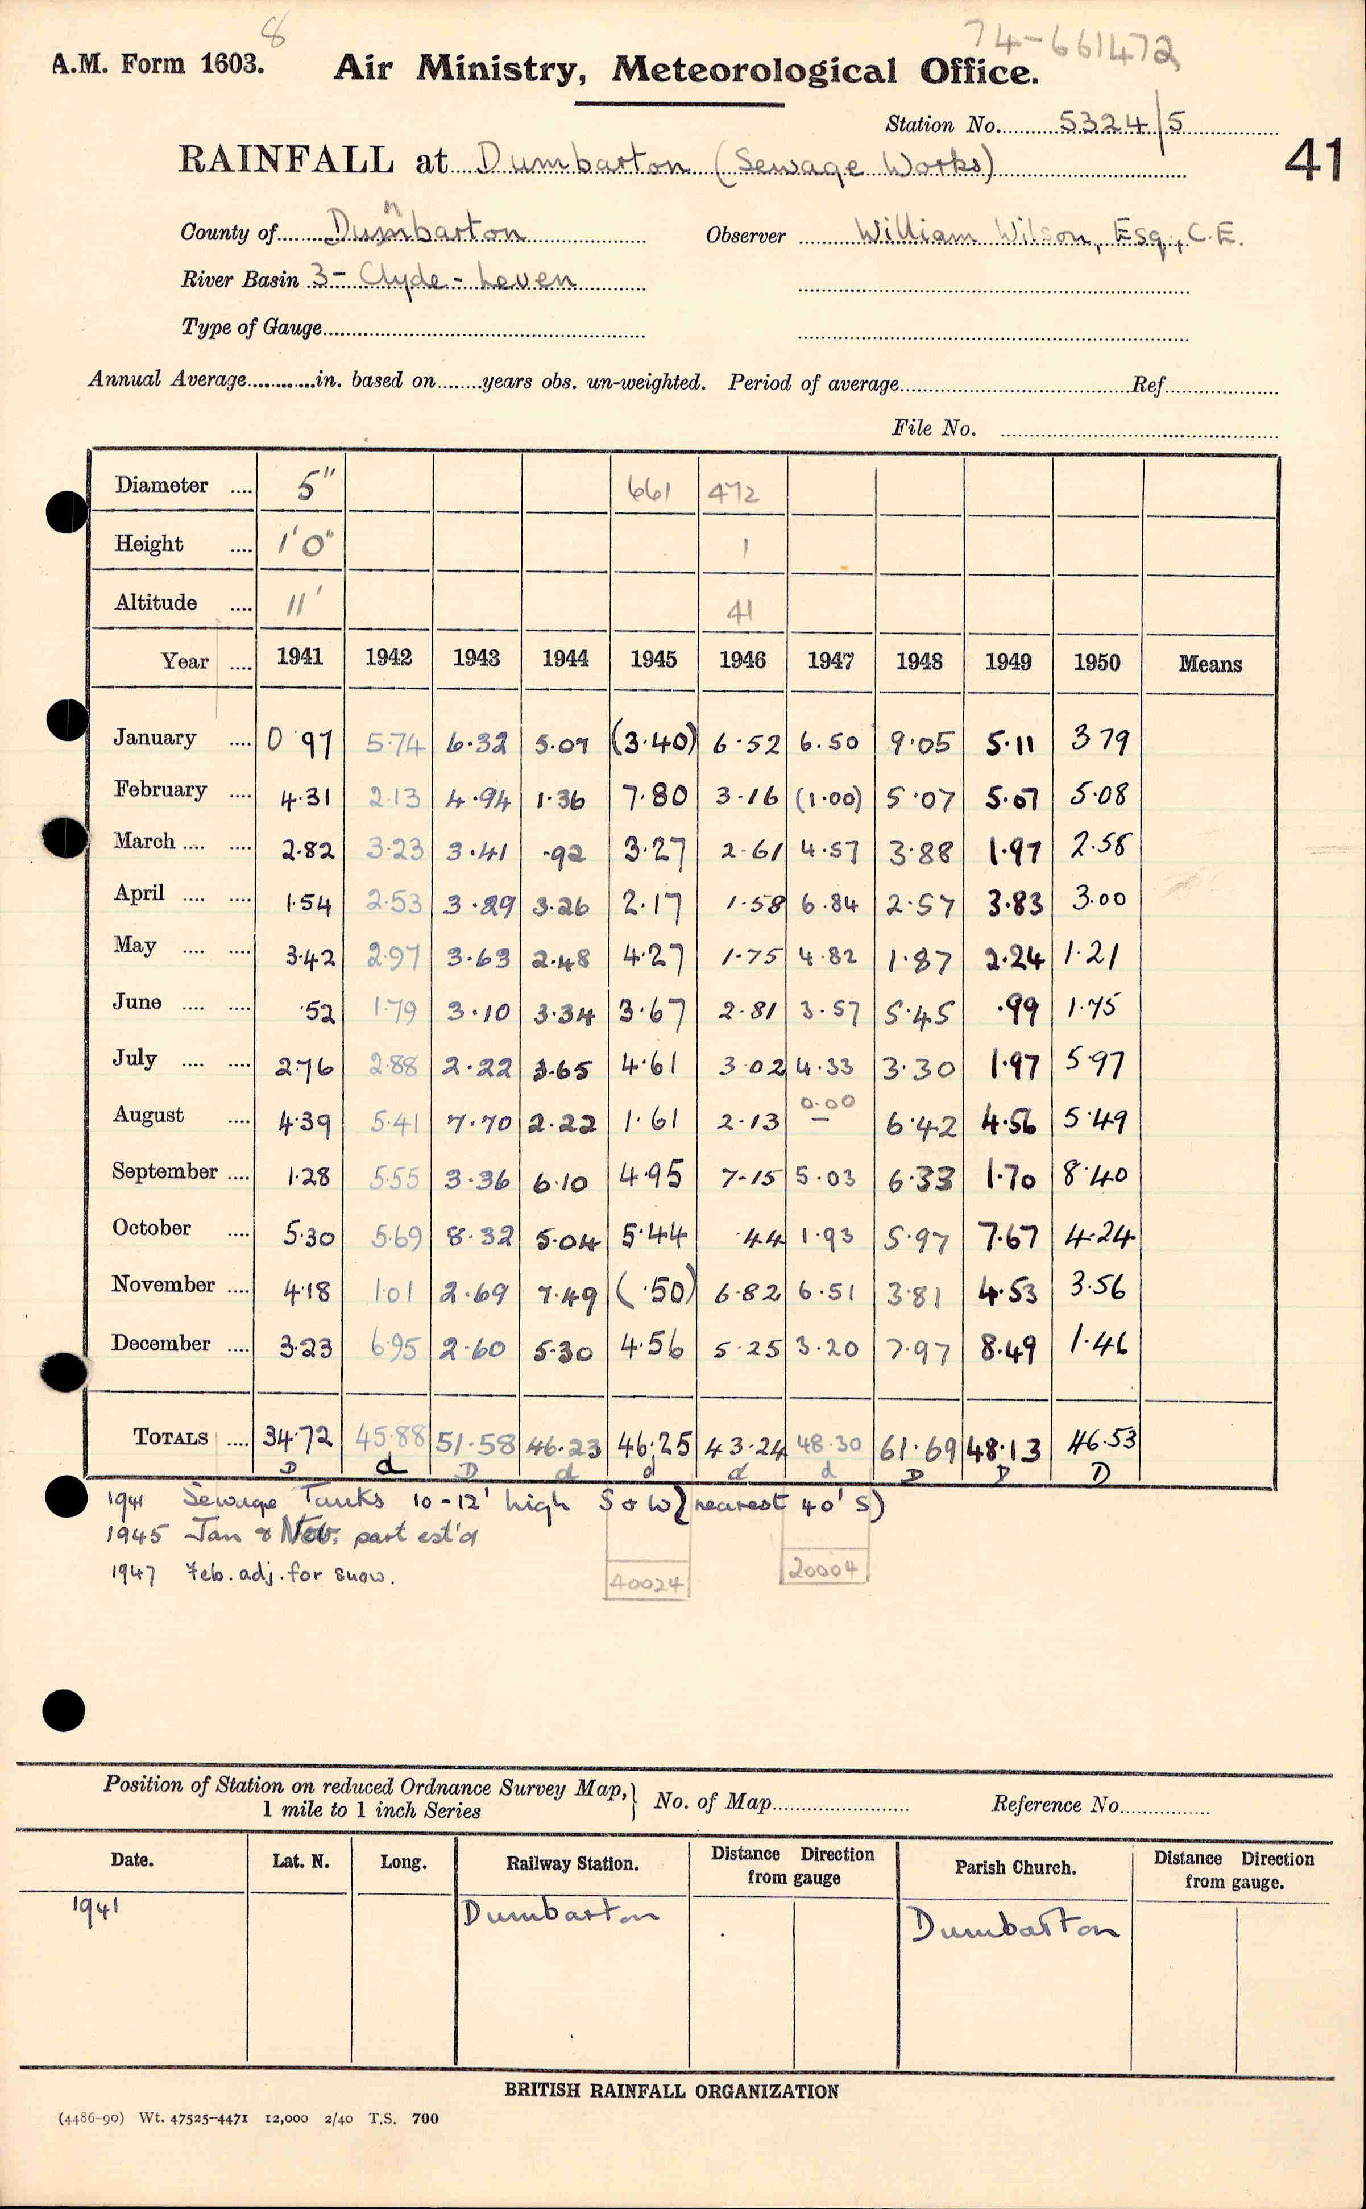 8
74-661472
A.M. Form 1603. Air Ministry, Meteorological Office.
Station No. 5324/5
41
RAINFALL at Dumbarton (Sewage Works)
n
County of Dumbarton Observer William Wilson, Esq., C.E.
River Basin 3- Clyde - Leven
Type of Gauge
Annual Average in. based on years obs. un-weighted. Period of average Ref
File No.
Diameter 5" 661 472
Height 1'0" 1
Altitude 11' 41
Year 1941 1942 1943 1944 1945 1946 1947 1948 1949 1950 Means
January 0 97 5.74 6.32 5.07 (3.40) 6.52 6.50 9.05 5.11 3 79
February 4.31 2.13 4.94 1.36 7.80 3.16 (1.00) 5.07 5.07 5.08
March 2.82 3.23 3.41 .92 3.27 2.61 4.57 3.88 1.97 2.58
April 1.54 2.53 3.29 3.26 2.17 1.58 6.84 2.57 3.83 3.00
May 3.42 2.97 3.63 2.48 4.27 1.75 4.82 1.87 2.24 1.21
June .52 1.79 3.10 3.34 3.67 2.81 3.57 5.45 .99 1.75
July 2.76 2.88 2.22 3.65 4.61 3.02 4.33 3.30 1.97 5.97
August 4.39 5.41 7.70 2.22 1.61 2.13 0.00 — 6.42 4.56 5.49
September 1.28 5.55 3.36 6.10 4.95 7.15 5.03 6.33 1.70 8.40
October 5.30 5.69 8.32 5.04 5.44 .44 1.93 5.97 7.67 4.24
November 4.18 1.01 2.69 7.49 (.50) 6.82 6.51 3.81 4.53 3.56
December 3.23 6.95 2.60 5.30 4.56 5.25 3.20 7.97 8.49 1.46
TOTALS 34.72 45.88 51.58 46.23 46.25 43.24 48.30 61.69 48.13 46.53
D d D d d d d D D D
1941 Sewage Tanks 10-12' high S & W (nearest 40' S)
1945 Jan & Nov. part est'd
1947 Feb. adj. for snow.
40024 20004
Position of Station on reduced Ordnance Survey Map, 1 mile to 1 inch Series } No. of Map Reference No.
Date. Lat. N. Long. Railway Station. Distance Direction from gauge Parish Church. Distance Direction from gauge.
1941 Dumbarton Dumbarton
BRITISH RAINFALL ORGANIZATION
(4486-90) Wt. 47525-4471 12,000 2/40 T.S. 700